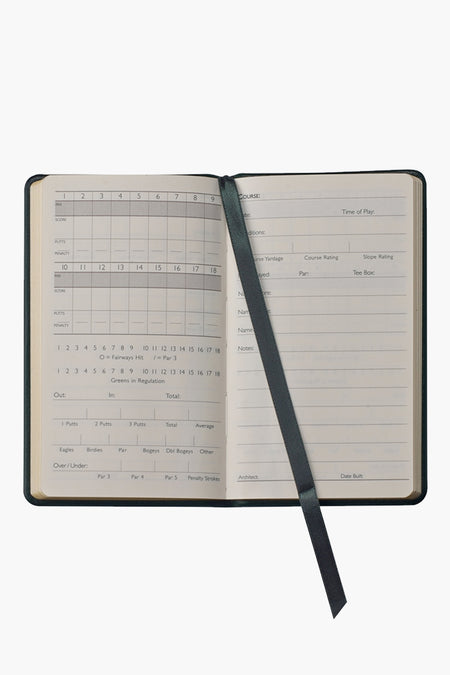 1 2 3 4 5 6 7 8 9
PAR
SCORE
PUTTS
PENALTY
10 11 12 13 14 15 16 17 18
PAR
SCORE
PUTTS
PENALTY
1 2 3 4 5 6 7 8 9 10 11 12 13 14 15 16 17 18
O = Fairways Hit / = Par 3
1 2 3 4 5 6 7 8 9 10 11 12 13 14 15 16 17 18
Greens in Regulation
Out: In: Total:
1 Putts 2 Putts 3 Putts Total Average
Eagles Birdies Par Bogeys Dbl Bogeys Other
Over / Under:
Par 3 Par 4 Par 5 Penalty Strokes
COURSE:
Time of Play:
Course Rating Slope Rating
Par: Tee Box:
Notes:
Architect: Date Built: